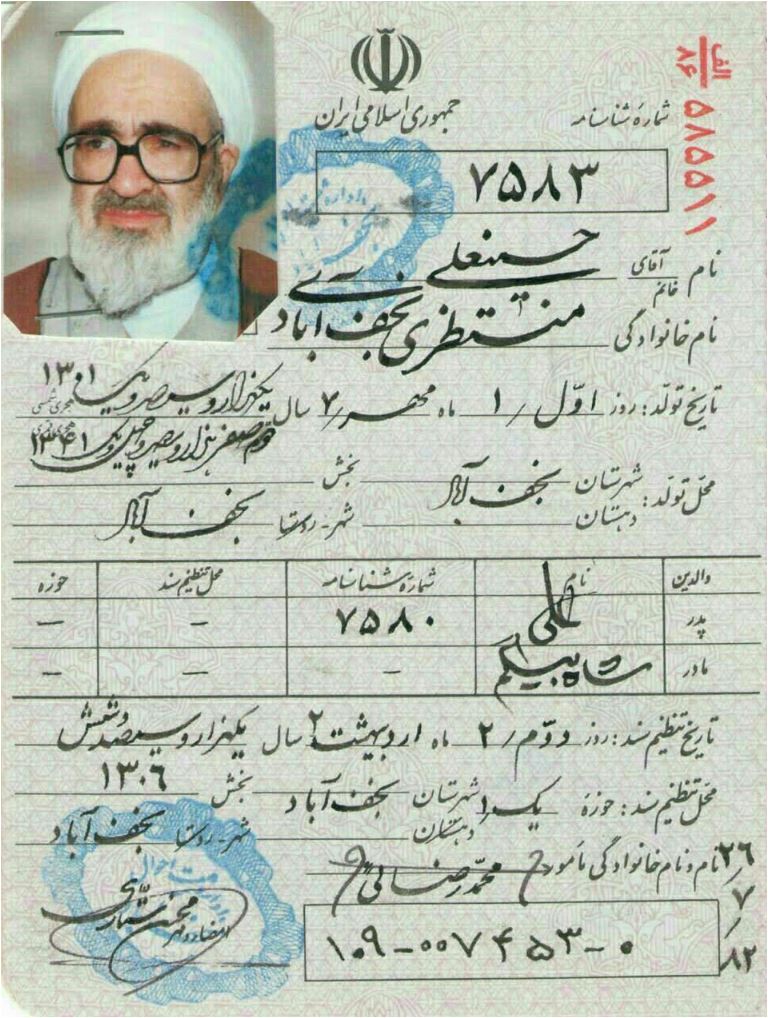 الف
۸۶
۵۸۵۵۱۱
جمهوری اسلامی ایران
شماره شناسنامه
۷۵۸۳
نام آقای خانم حسینعلی
نام خانوادگی منتظری نجف آبادی
تاریخ تولد: روز اوّل / ۱ ماه مهر / ۷ سال یکهزار و سیصد و یک ۱۳۰۱ هجری شمسی
صفر هزار و سیصد و چهل و یک ۱۳۴۱
محل تولد: شهرستان نجف آباد بخش
دهستان شهر - روستا نجف آباد
والدین نام شماره شناسنامه محل تنظیم سند حوزه
پدر علی ۷۵۸۰ — —
مادر شاه بیگم — — —
تاریخ تنظیم سند: روز دوّم / ۲ ماه اردیبهشت ۲ سال یکهزار و سیصد و شش
۱۳۰۶
محل تنظیم سند: حوزه یک ۱ شهرستان نجف آباد بخش
دهستان شهر - روستا نجف آباد
نام و نام خانوادگی مأمور محمّدرضا
۲۶/۷/۸۲
۱۰۹-۰۰۷۴۵۳-۰
امضاء و مهر